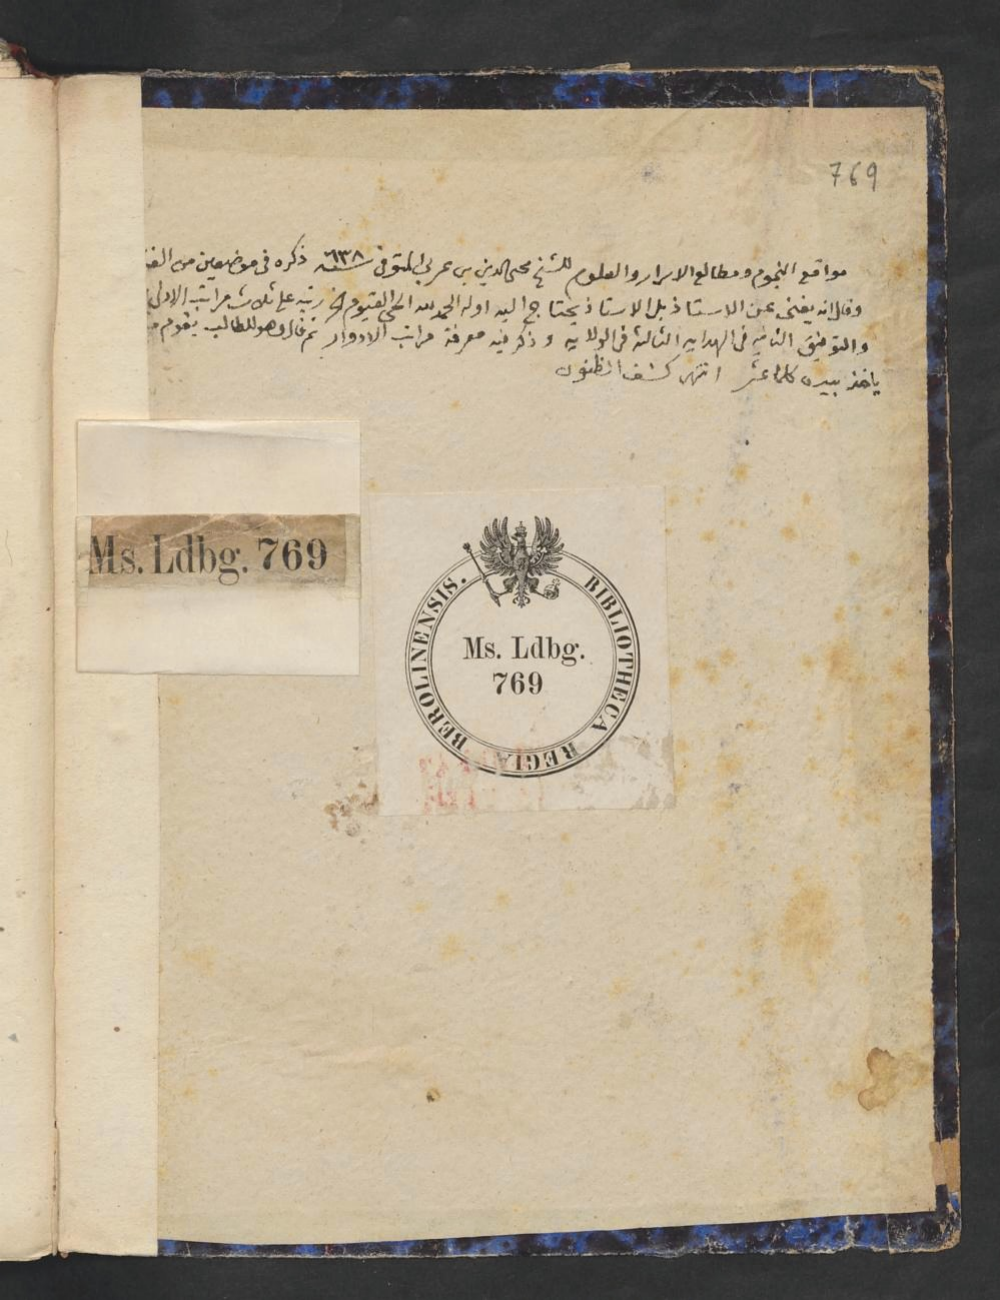 769
مواقع النجوم ومطالع الاسرار والعلوم للشيخ محي الدين بن عربي المتوفى سنة ٦٣٨ ذكره في موضعين من
وقال انه يغنى عن الاستاذ بل الاستاذ يحتاج اليه اوله الحمد لله الحي القيوم الخ رتبه على ثلث مراتب الاولى
والتوفيق الثانية في الهداية الثالثة في الولاية و ذكر فيه معرفة مراتب الادوار ثم قال وهو للطالب يقوم
ياخذ بيده كلما عثر انتهى كشف الظنون
Ms. Ldbg. 769
BIBLIOTHECA REGIA BEROLINENSIS.
Ms. Ldbg.
769